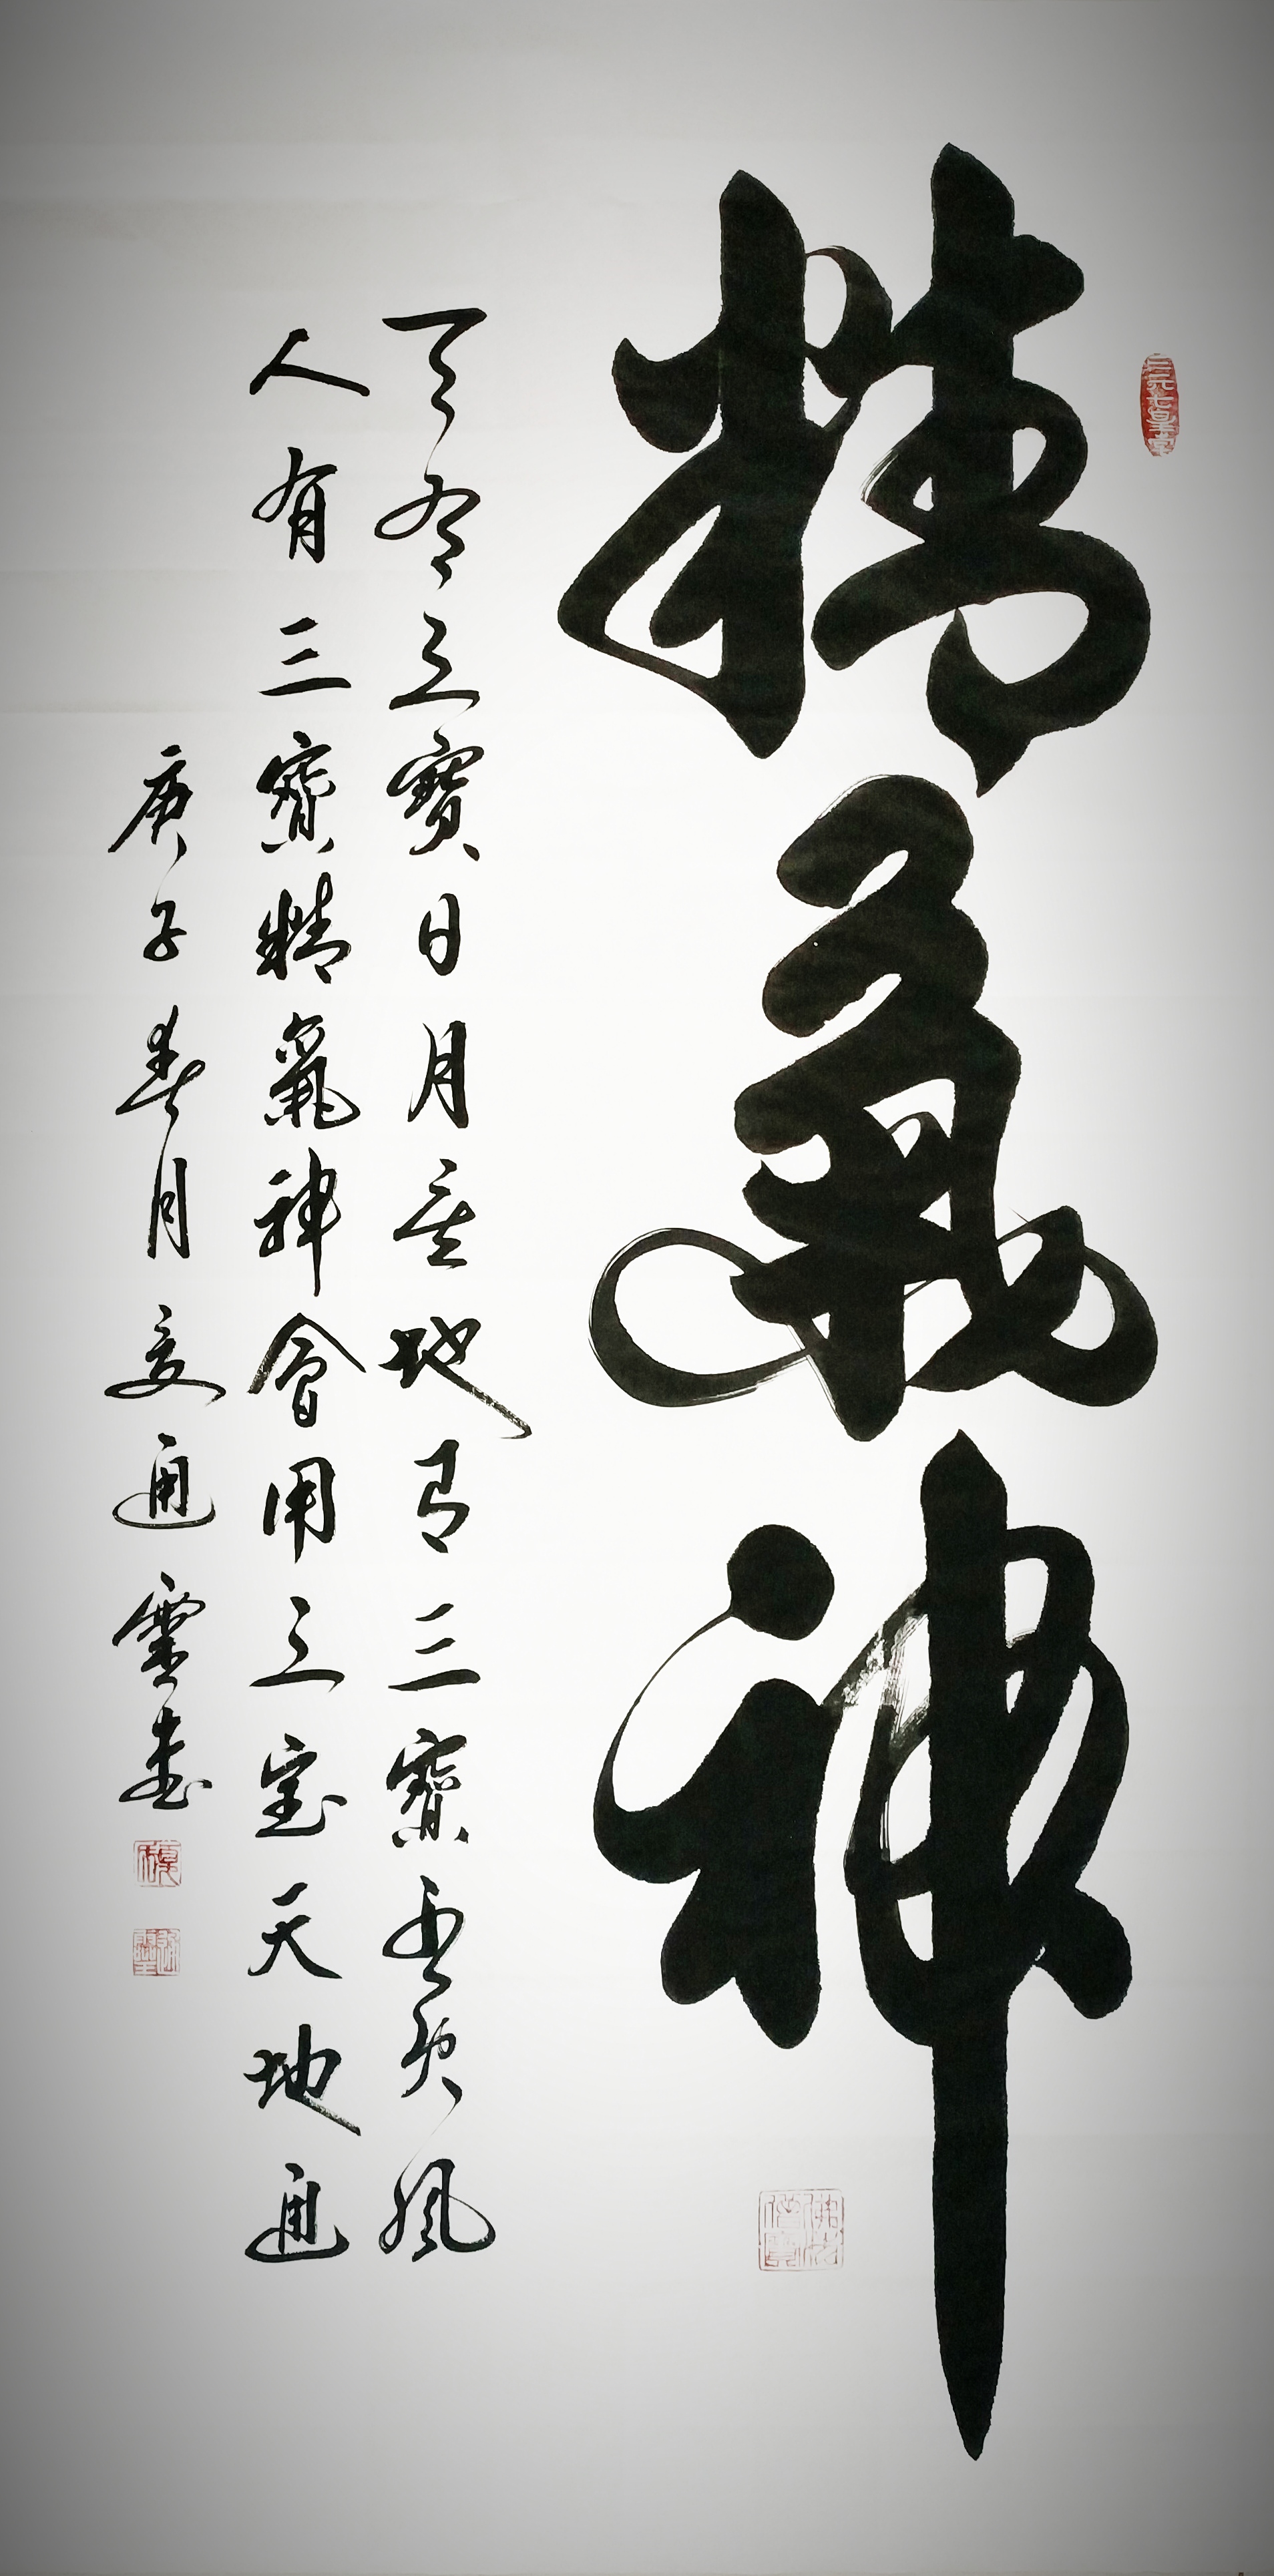 精氣神
天有三寶日月星地有三寶水火風
人有三寶精氣神會用三宝天地通
庚子春月夏通靈書